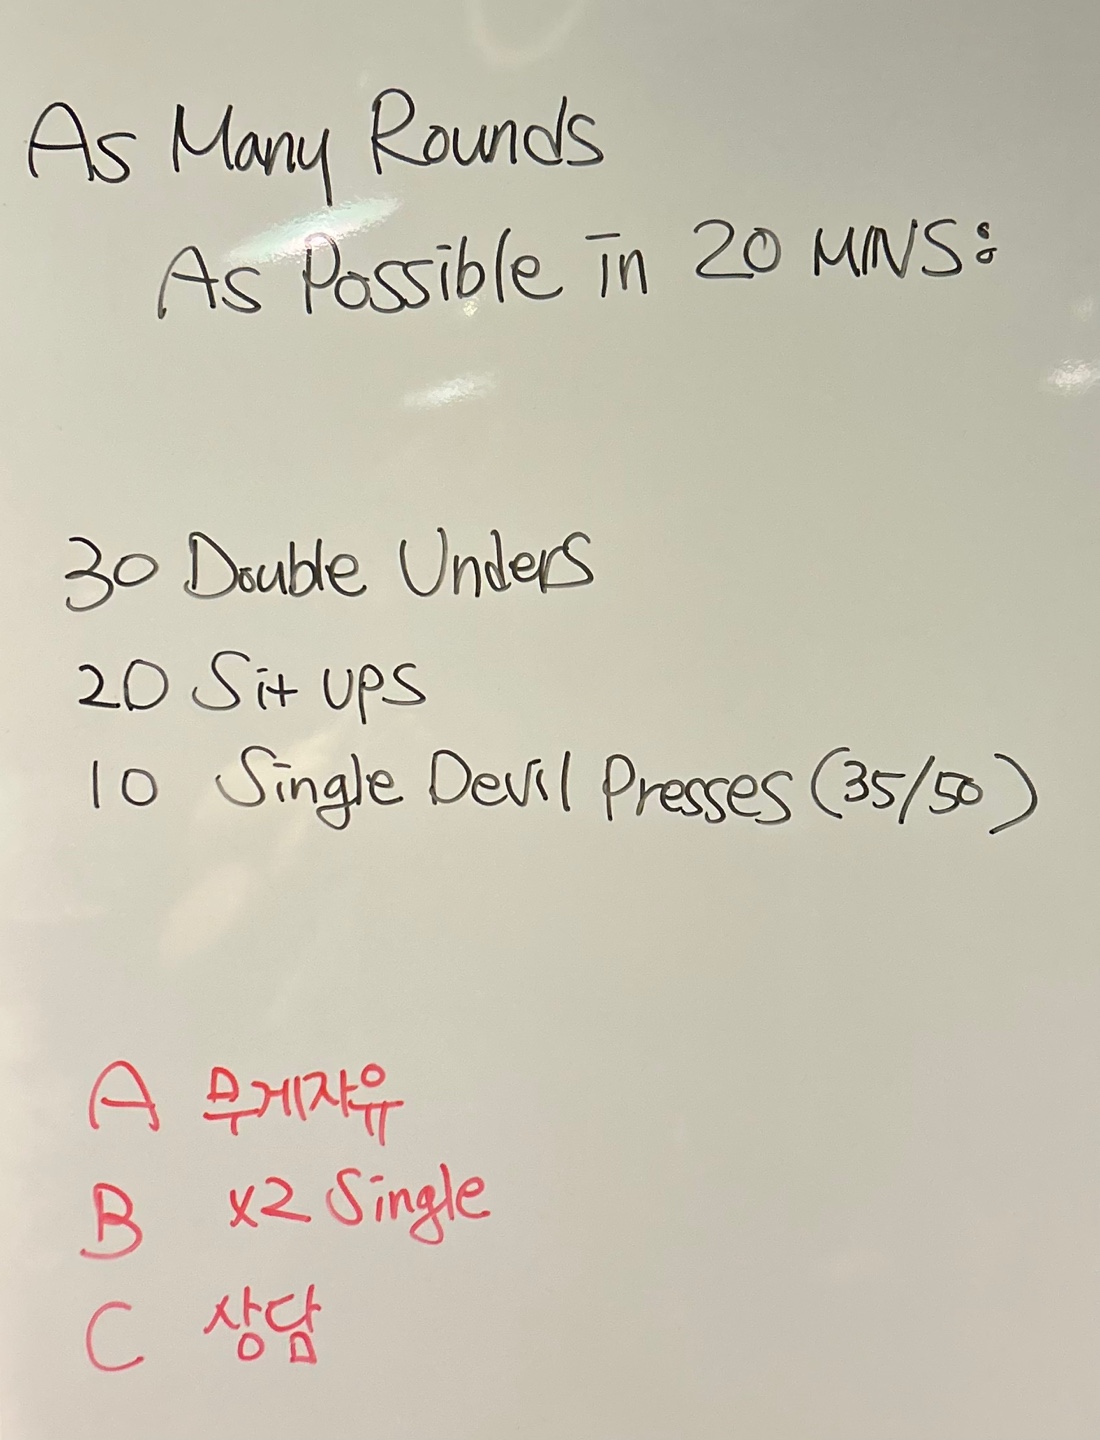 As Many Rounds
As Possible in 20 MINS:
30 Double Unders
20 Sit UPS
10 Single Devil Presses (35/50)
A 무게자유
B x2 Single
C 상담